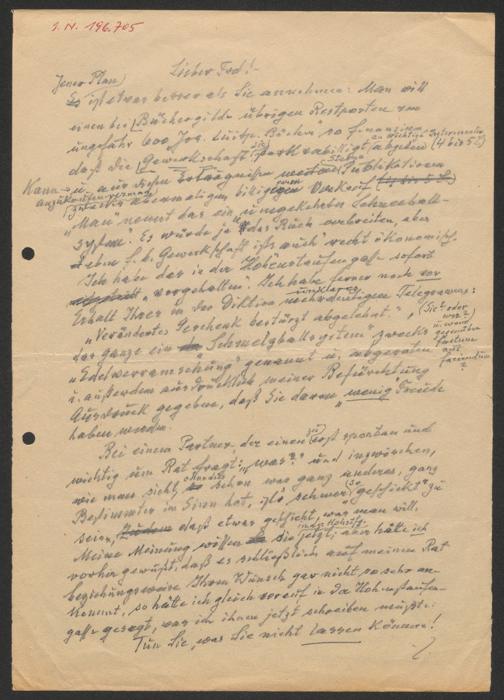 I. N. 196.705
Lieber Fred! –
Jener Plan
ist etwas besser als Sie annehmen: Man will
einen bei Büchergilde übrigen Restposten von
ungefähr 600 Jos. Luitp. Büchern so finanzieren
daß die Gewerkschaft stark verbilligt abgeben (4 bis 5 S)
Kann u. aus diesen Erträgnissen Publikationen
zum Verkauf (4 bis 5 S.)
"Man" nennt das ein "umgekehrtes Schneeball-
System". Es würde ja "das Buch verbreiten, aber
f. d. Gewerkschaft ists auch" recht ökonomisch.
Ich habe das in der Hohenstaufengasse sofort
vorgehalten. Ich habe ferner noch vor
Erhalt Ihres in der Diktion unklaren
mehrdeutigen Telegramms:
"Verändertes Geschenk bestürzt abgelehnt."
(Sie? oder
wer?
u. wann
gegenüber
factum
das ganze ein "Schmelzballsystem" zwecks
"Edelverramschung" genannt u. abgeraten
u. außerdem ausdrücklich meiner Befürchtung
Ausdruck gegeben, daß Sie daran wenig Freude
haben werden.
Bei einem Partner, der einen zuerst spontan und
wichtig um Rat fragt: "was?" und inzwischen,
wie man sieht, schon was ganz anderes, ganz
Bestimmtes im Sinn hat, ists schwer, so "geschickt" zu
sein, daß etwas geschieht, was man will.
Meine Meinung wissen Sie jetzt; aber hätte ich
vorher gewußt, daß es schließlich auf meinen Rat
beziehungsweise Ihren Wunsch gar nicht so sehr an-
kommt, so hätte ich gleich vorauf in der Hohenstaufen-
gasse gesagt, was ich ihnen jetzt schreiben müßte:
Tun Sie, was Sie nicht lassen können!